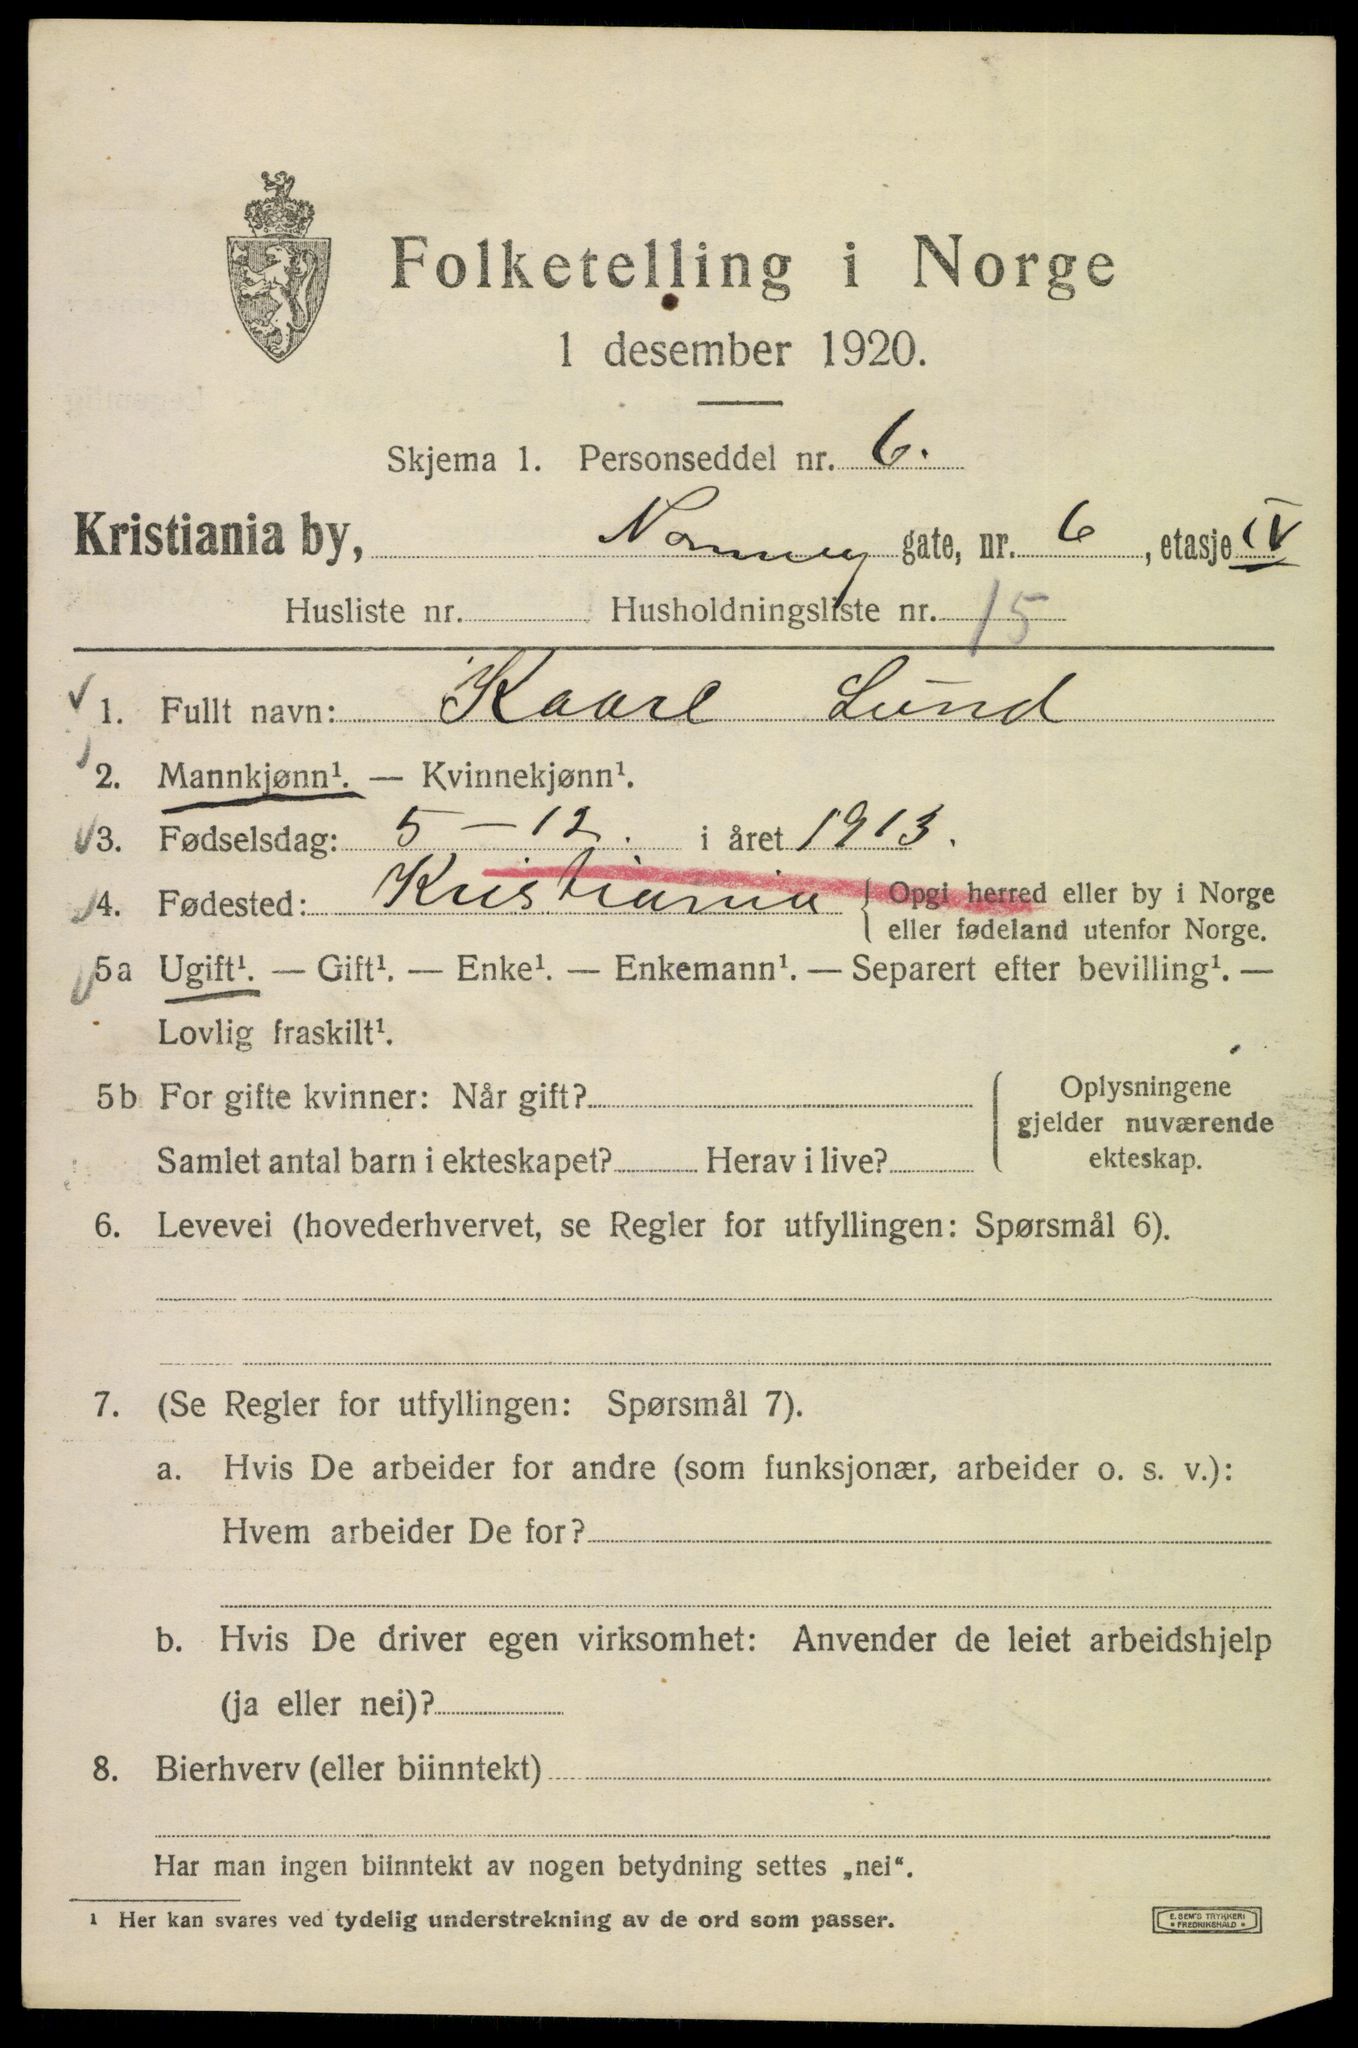 Folketelling i Norge
1 desember 1920.
Skjema 1. Personseddel nr. 6.
Kristiania by, gate, nr. 6, etasje IV
Husliste nr. Husholdningsliste nr. 15
1. Fullt navn: Kaare Lund
2. Mannkjønn¹. — Kvinnekjønn¹.
3. Fødselsdag: 5 – 12. i året 1913.
4. Fødested: Kristiania { Opgi herred eller by i Norge
eller fødeland utenfor Norge.
5a Ugift¹. — Gift¹. — Enke¹. — Enkemann¹. — Separert efter bevilling¹. —
Lovlig fraskilt¹.
5b For gifte kvinner: Når gift?
Samlet antal barn i ekteskapet? Herav i live?
Oplysningene
gjelder nuværende
ekteskap.
6. Levevei (hovederhvervet, se Regler for utfyllingen: Spørsmål 6).
7. (Se Regler for utfyllingen: Spørsmål 7).
a. Hvis De arbeider for andre (som funksjonær, arbeider o. s. v.):
Hvem arbeider De for?
b. Hvis De driver egen virksomhet: Anvender de leiet arbeidshjelp
(ja eller nei)?
8. Bierhverv (eller biinntekt)
Har man ingen biinntekt av nogen betydning settes „nei“.
¹ Her kan svares ved tydelig understrekning av de ord som passer.
E. SEM'S TRYKKERI
• FREDRIKSHALD •